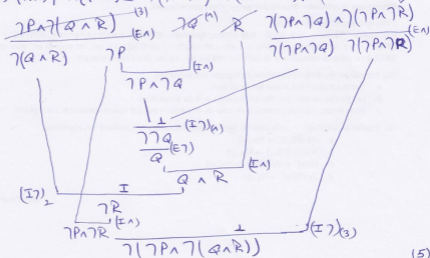 ¬P∧¬(Q∧R) (3) ¬Q (1) R ¬(¬P∧¬Q)∧¬(¬P∧¬R)
(E∧) (E∧)
¬(Q∧R) ¬P ¬(¬P∧¬Q) ¬(¬P∧¬R)
(I∧)
¬P∧¬Q
⊥
¬¬Q (I¬)(1)
Q (E¬)
(I∧)
Q ∧ R
(I¬)2 ⊥
¬R
(I∧)
¬P∧¬R ⊥ (I¬)(3)
¬(¬P∧¬(Q∧R))
(5)